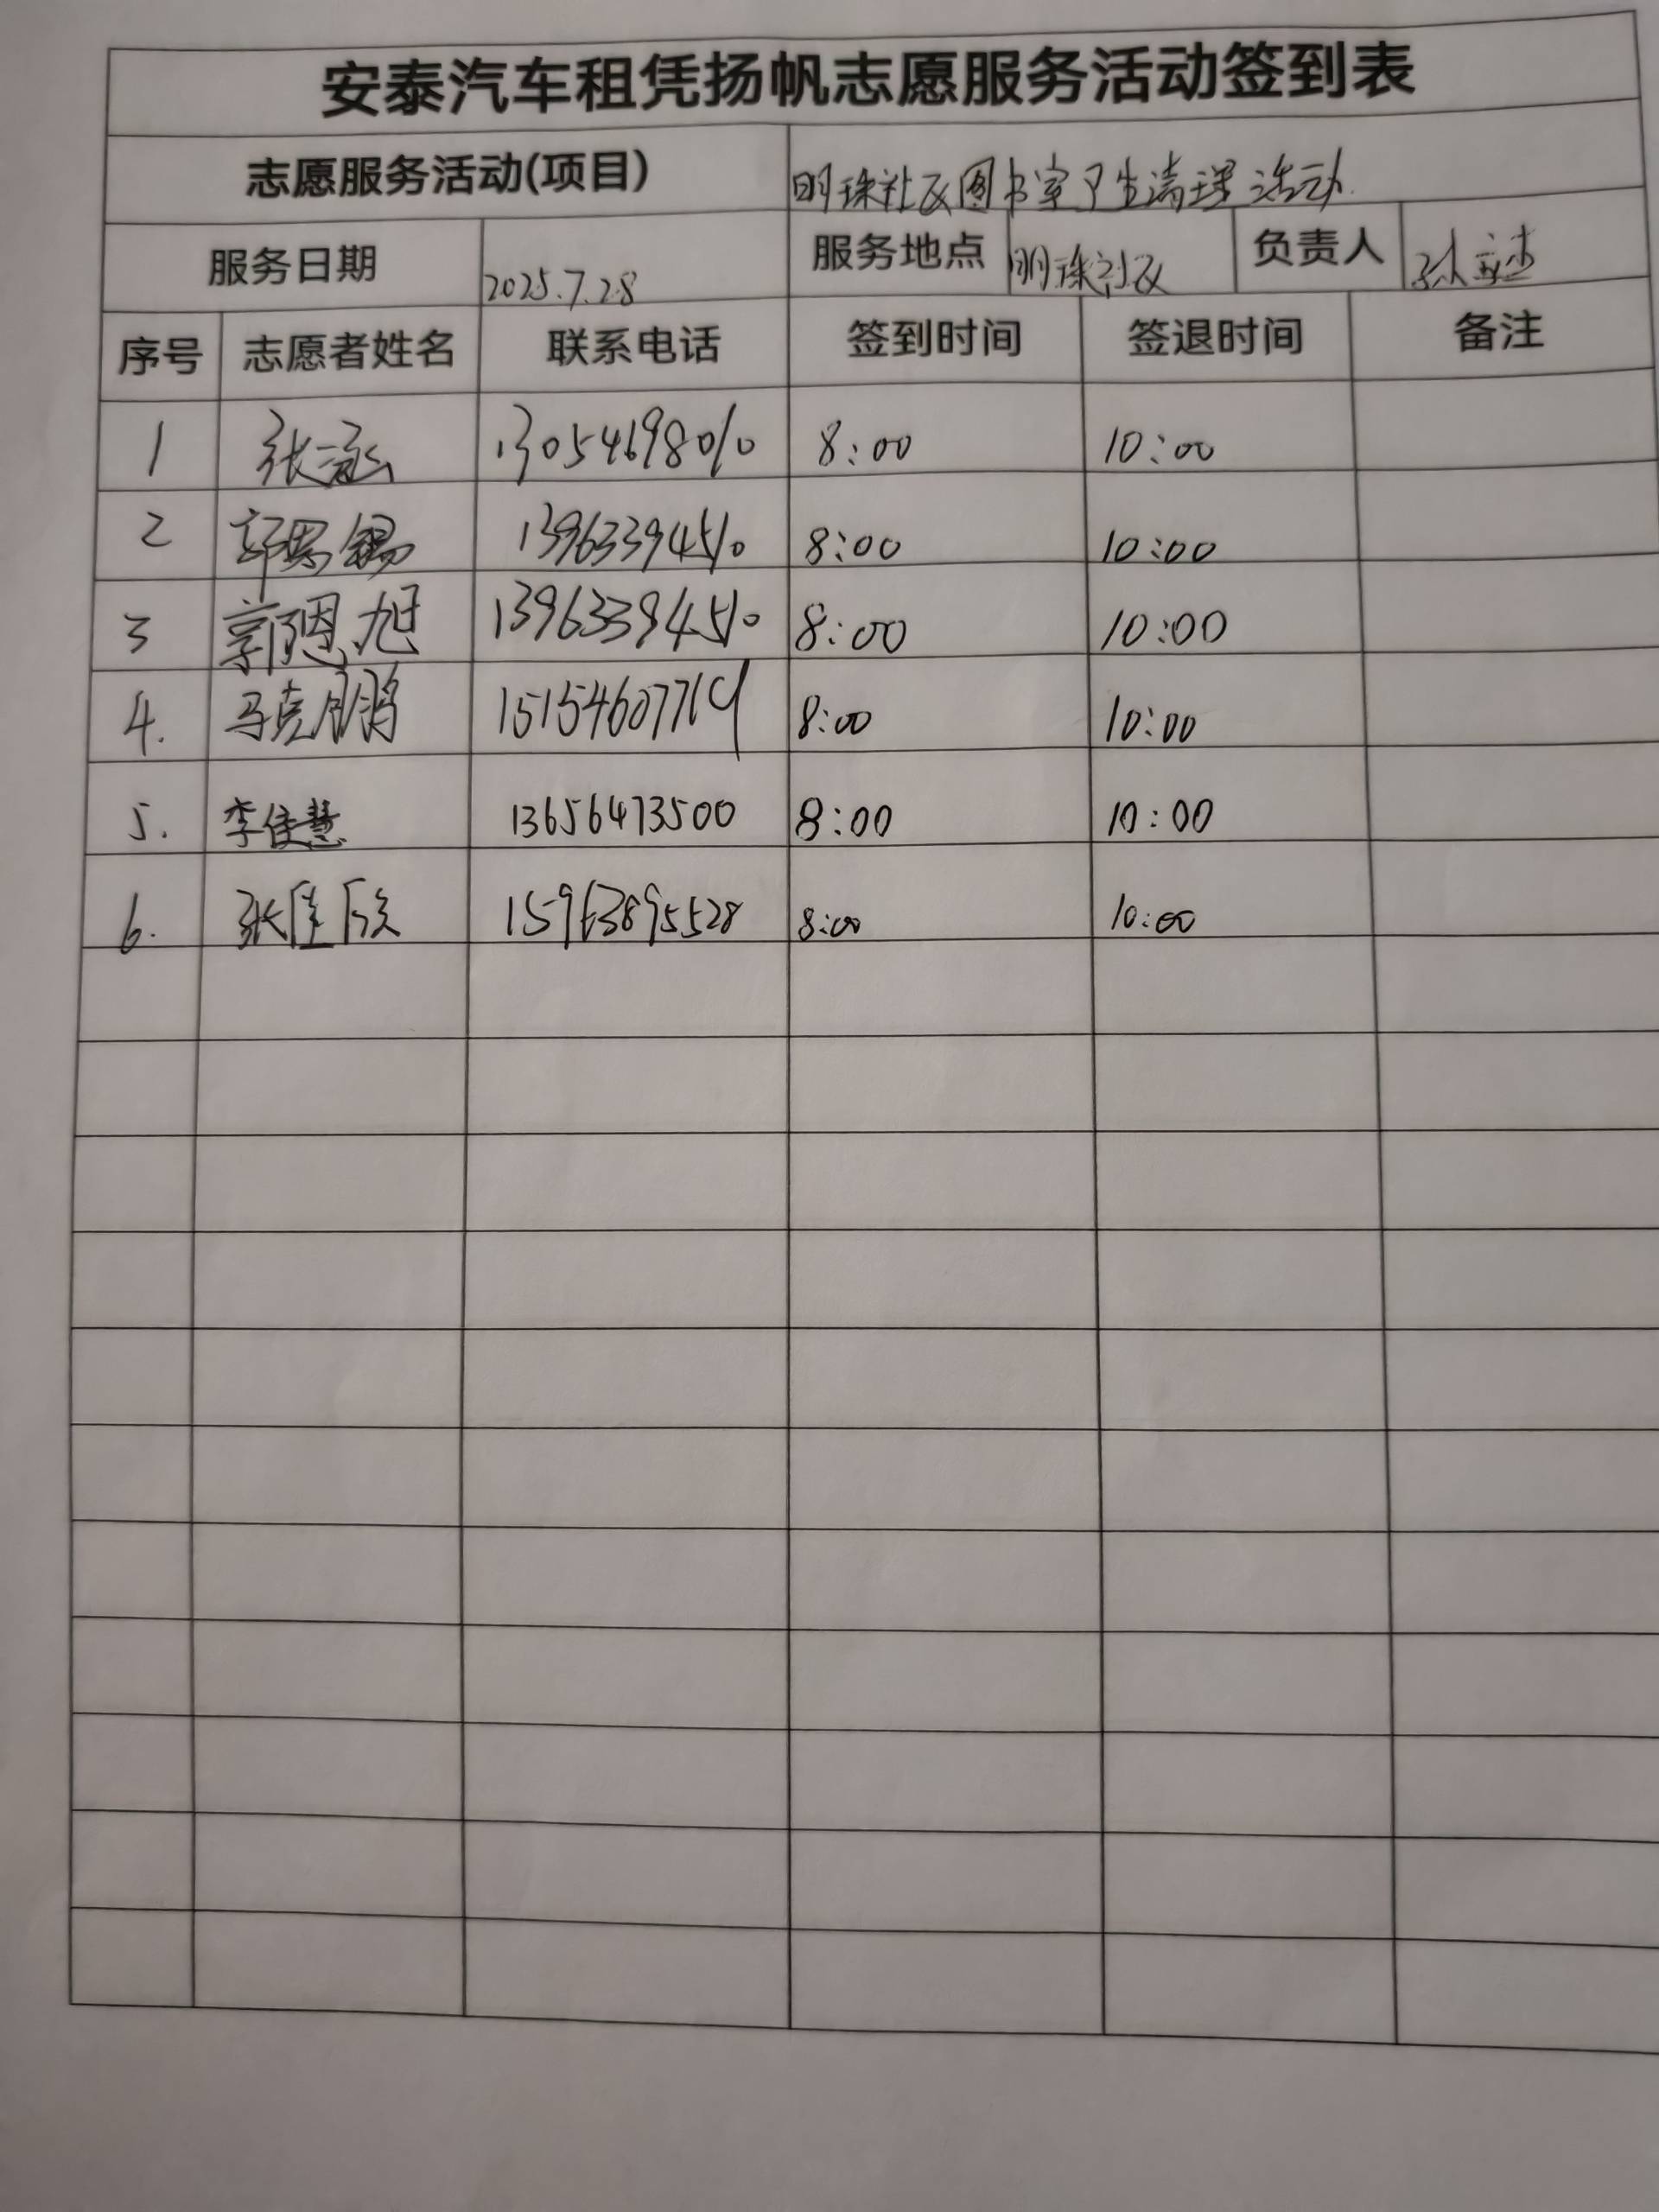 安泰汽车租凭扬帆志愿服务活动签到表
志愿服务活动(项目) 明珠社区图书室卫生清理活动.
服务日期 2025.7.28 服务地点 明珠社区 负责人 孙
序号 志愿者姓名 联系电话 签到时间 签退时间 备注
1 张涵 13054698010 8:00 10:00
2 郭恩锡 13963394510 8:00 10:00
3 郭恩旭 13963394510 8:00 10:00
4. 马克鹏 15154607719 8:00 10:00
5. 李佳慧 13656473500 8:00 10:00
6. 张佳欣 15963895528 8:00 10:00